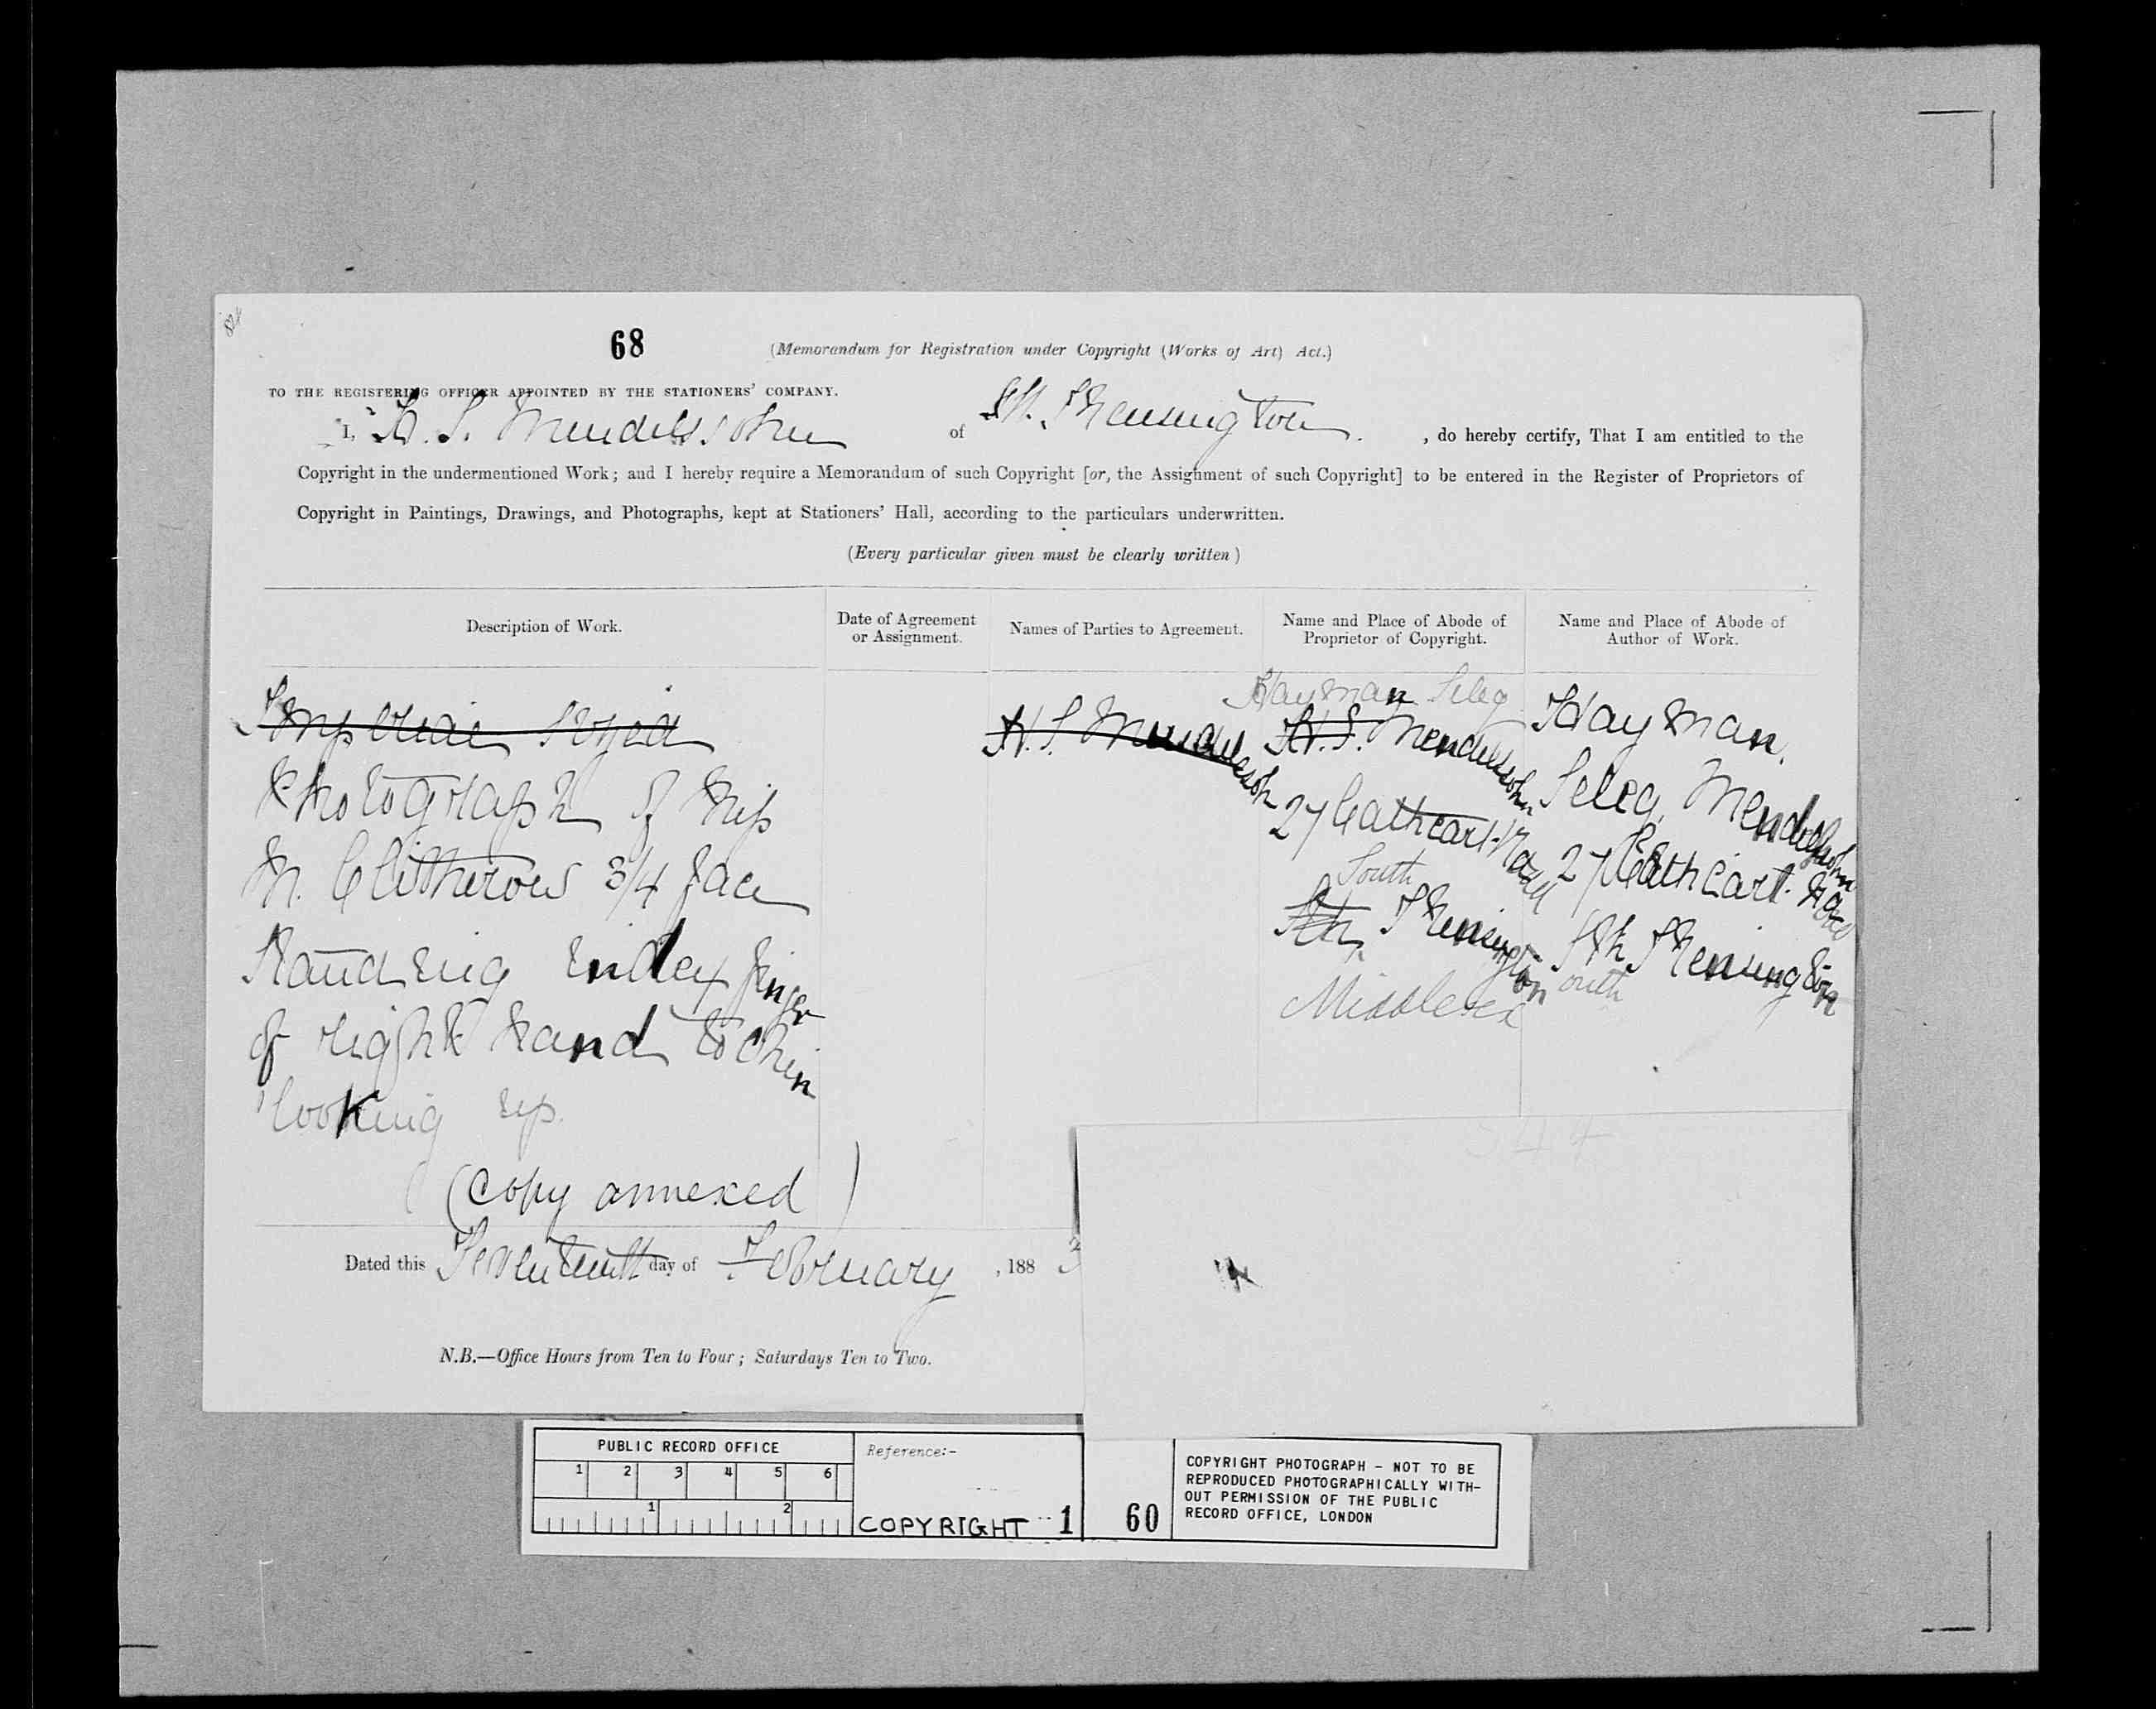 68
(Memorandum for Registration under Copyright (Works of Art) Act.)
TO THE REGISTERING OFFICER APPOINTED BY THE STATIONERS' COMPANY.
I, H. S. Mendelssohn of Sth. Kensington. , do hereby certify, That I am entitled to the
Copyright in the undermentioned Work; and I hereby require a Memorandum of such Copyright [or, the Assignment of such Copyright] to be entered in the Register of Proprietors of
Copyright in Paintings, Drawings, and Photographs, kept at Stationers' Hall, according to the particulars underwritten.
(Every particular given must be clearly written)
Description of Work.
Date of Agreement
or Assignment.
Names of Parties to Agreement.
Name and Place of Abode of
Proprietor of Copyright.
Name and Place of Abode of
Author of Work.
Photograph of Miss
M. Clitherow 3/4 face
Standing index finger
of right hand to chin
looking up.
(Copy annexed)
H. S. Mendelssohn
Hayman Seleg
H. S. Mendelssohn
27 Cathcart Road
South
Sth. Kensington
Middlesex
Hayman.
Seleg, Mendelssohn
27 Cathcart Road
Sth Kensington
outh
Dated this Seventeenth day of February , 188 3
N.B.—Office Hours from Ten to Four; Saturdays Ten to Two.
PUBLIC RECORD OFFICE
1 2 3 4 5 6
1 2
Reference:-
COPYRIGHT 1 60
COPYRIGHT PHOTOGRAPH - NOT TO BE
REPRODUCED PHOTOGRAPHICALLY WITH-
OUT PERMISSION OF THE PUBLIC
RECORD OFFICE, LONDON